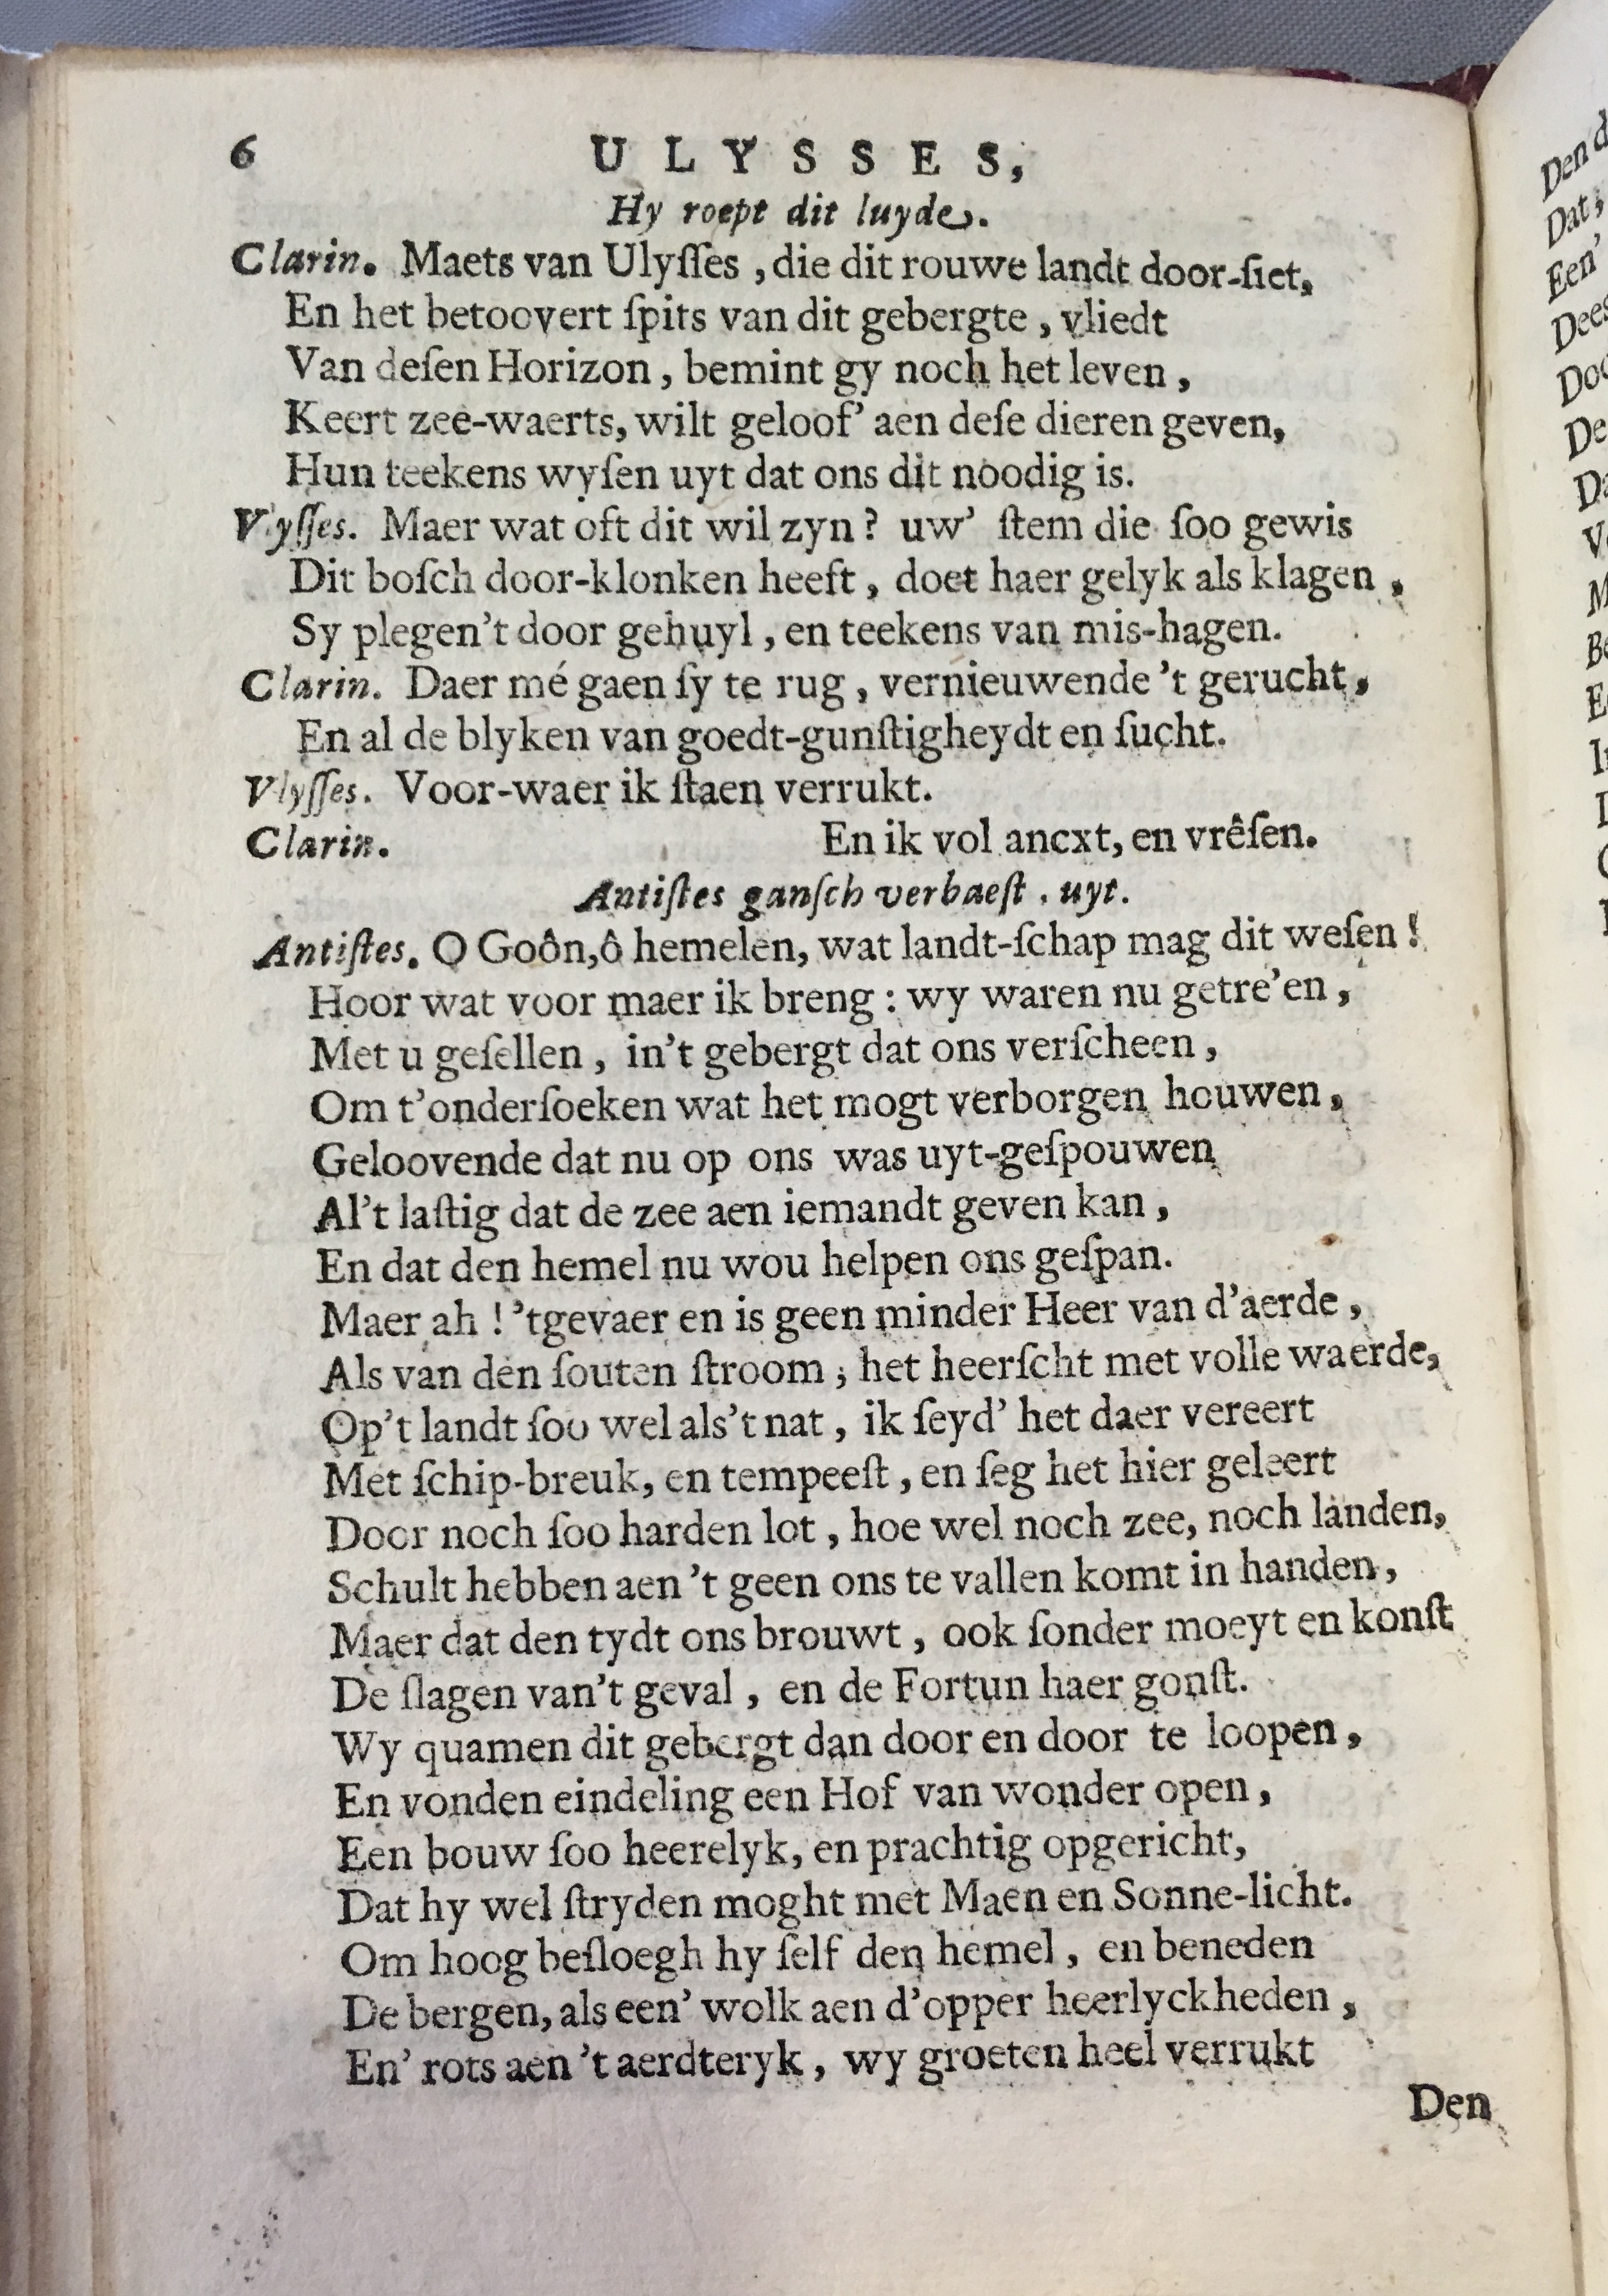 6 ULYSSES,
Hy roept dit luyde.
Clarin. Maets van Ulyſſes, die dit rouwe landt door-ſiet,
En het betoovert ſpits van dit gebergte, vliedt
Van deſen Horizon, bemint gy noch het leven,
Keert zee-waerts, wilt geloof’ aen deſe dieren geven,
Hun teekens wyſen uyt dat ons dit noodig is.
Vlyſſes. Maer wat oft dit wil zyn? uw’ ſtem die ſoo gewis
Dit boſch door-klonken heeft, doet haer gelyk als klagen,
Sy plegen’t door gehuyl, en teekens van mis-hagen.
Clarin. Daer mé gaen ſy te rug, vernieuwende ’t gerucht,
En al de blyken van goedt-gunſtigheydt en ſucht.
Vlyſſes. Voor-waer ik ſtaen verrukt.
Clarin. En ik vol ancxt, en vrêſen.
Antiſtes ganſch verbaeſt, uyt.
Antiſtes. O Goôn, ô hemelen, wat landt-ſchap mag dit weſen!
Hoor wat voor maer ik breng: wy waren nu getre’en,
Met u geſellen, in’t gebergt dat ons verſcheen,
Om t’onderſoeken wat het mogt verborgen houwen,
Geloovende dat nu op ons was uyt-geſpouwen
Al’t laſtig dat de zee aen iemandt geven kan,
En dat den hemel nu wou helpen ons geſpan.
Maer ah! ’tgevaer en is geen minder Heer van d’aerde,
Als van den ſouten ſtroom; het heerſcht met volle waerde,
Op’t landt ſoo wel als’t nat, ik ſeyd’ het daer vereert
Met ſchip-breuk, en tempeeſt, en ſeg het hier geleert
Door noch ſoo harden lot, hoe wel noch zee, noch landen,
Schult hebben aen ’t geen ons te vallen komt in handen,
Maer dat den tydt ons brouwt, ook ſonder moeyt en konſt
De ſlagen van’t geval, en de Fortun haer gonſt.
Wy quamen dit gebergt dan door en door te loopen,
En vonden eindeling een Hof van wonder open,
Een bouw ſoo heerelyk, en prachtig opgericht,
Dat hy wel ſtryden moght met Maen en Sonne-licht.
Om hoog beſloegh hy ſelf den hemel, en beneden
De bergen, als een’ wolk aen d’opper heerlyckheden,
En’ rots aen ’t aerdteryk, wy groeten heel verrukt
Den